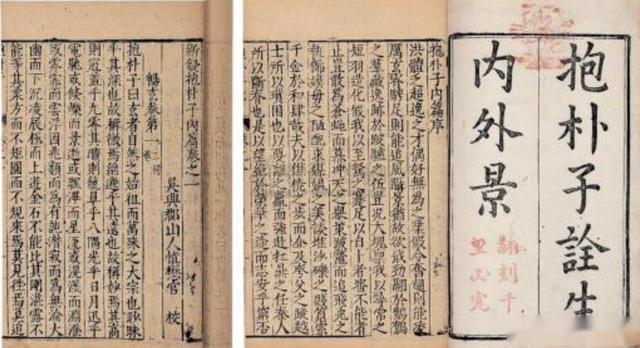 抱朴子詮生
內外景
翻刻千
里必究
抱朴子內篇序
洪體乏超逸之才偶好無為之業假令奮翅則能凌
厲玄霄騁足則能追風躡景猶故欲戢勁翮於鷦鷯
之羣藏逸跡於跛驢之伍豈况大塊稟我以尋常之
短羽造化假我以至駑之蹇足以自卜者審不能者
止豈敢力蒼蠅而慕冲天之舉策跛鱉而追飛兎之
軌飾嫫母之陋醜求媒陽之美談推沙礫之賤質索
千金於和肆哉夫以僬僥之步而企及夸父之蹤近
士所以頓困也以要離之羸而強赴扛鼎之任秦人
所以斷筋也是以望絕於榮華之途而志安乎窮否
新鋟抱朴子內篇卷之一
吳興郡山人慎懋官 校
暢玄卷第一
抱朴子曰玄者自然之始祖而萬殊之大宗也眇眛
乎其深也故稱微焉綿邈乎其遠也故稱妙焉其高
則冠蓋乎九霄其曠則籠罩乎八隅光乎日月迅乎
電馳或倏爍而景逝或飄滭而星流或滉漾而淵澄
或雰霏而雲浮因兆類而為有託潛寂而為無淪大
幽而下沉凌辰極而上遊金石不能比其剛湛露不
能等其柔方而不矩圓而不規來焉莫見往焉莫追